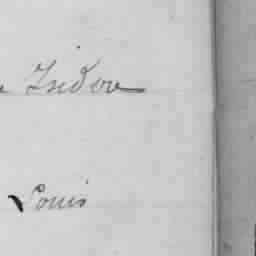 Isidore
Louis